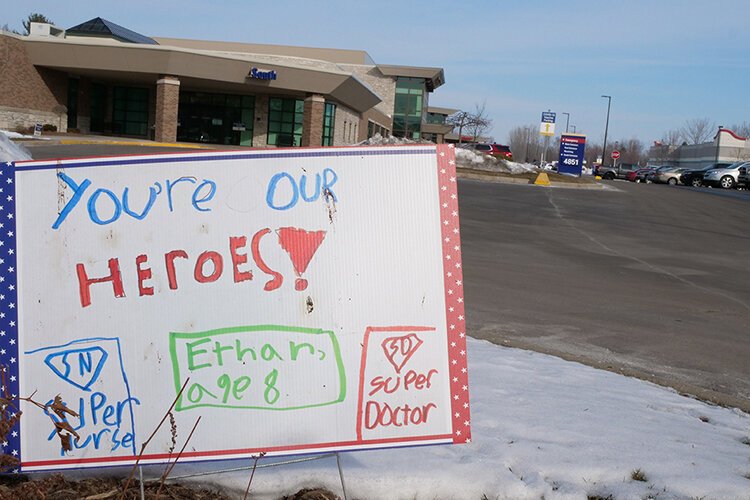 South
4851
You're OUR
HEROES!
SN
SUPer
Nurse
Ethan,
age 8
SD
SUPer
Doctor